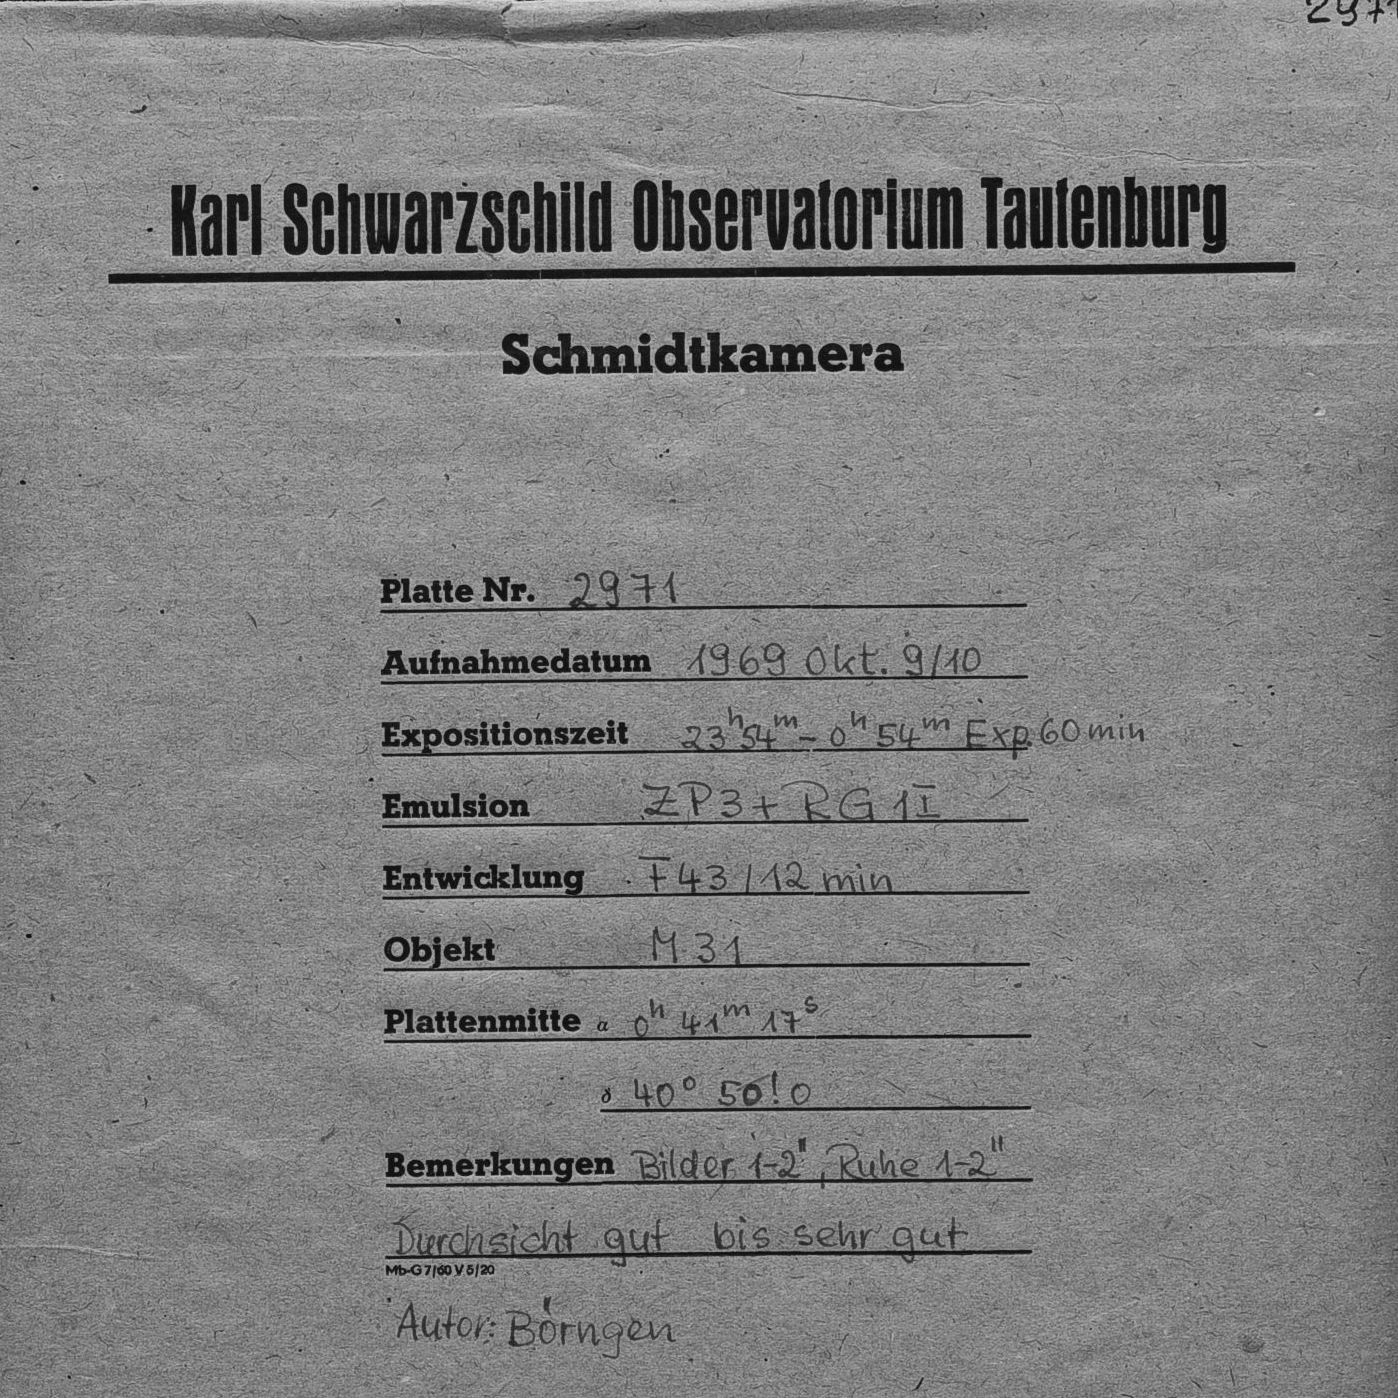 2971
Karl Schwarzschild Observatorium Tautenburg
Schmidtkamera
Platte Nr. 2971
Aufnahmedatum 1969 Okt. 9/10
Expositionszeit 23h54m - 0h54m Exp. 60 min
Emulsion ZP3 + RG 1 I
Entwicklung F43 / 12 min
Objekt M 31
Plattenmitte α 0h 41m 17s
δ 40° 50!0
Bemerkungen Bilder 1-2", Ruhe 1-2"
Durchsicht gut bis sehr gut
Mb-G 7/60 V 5/20
Autor: Börngen